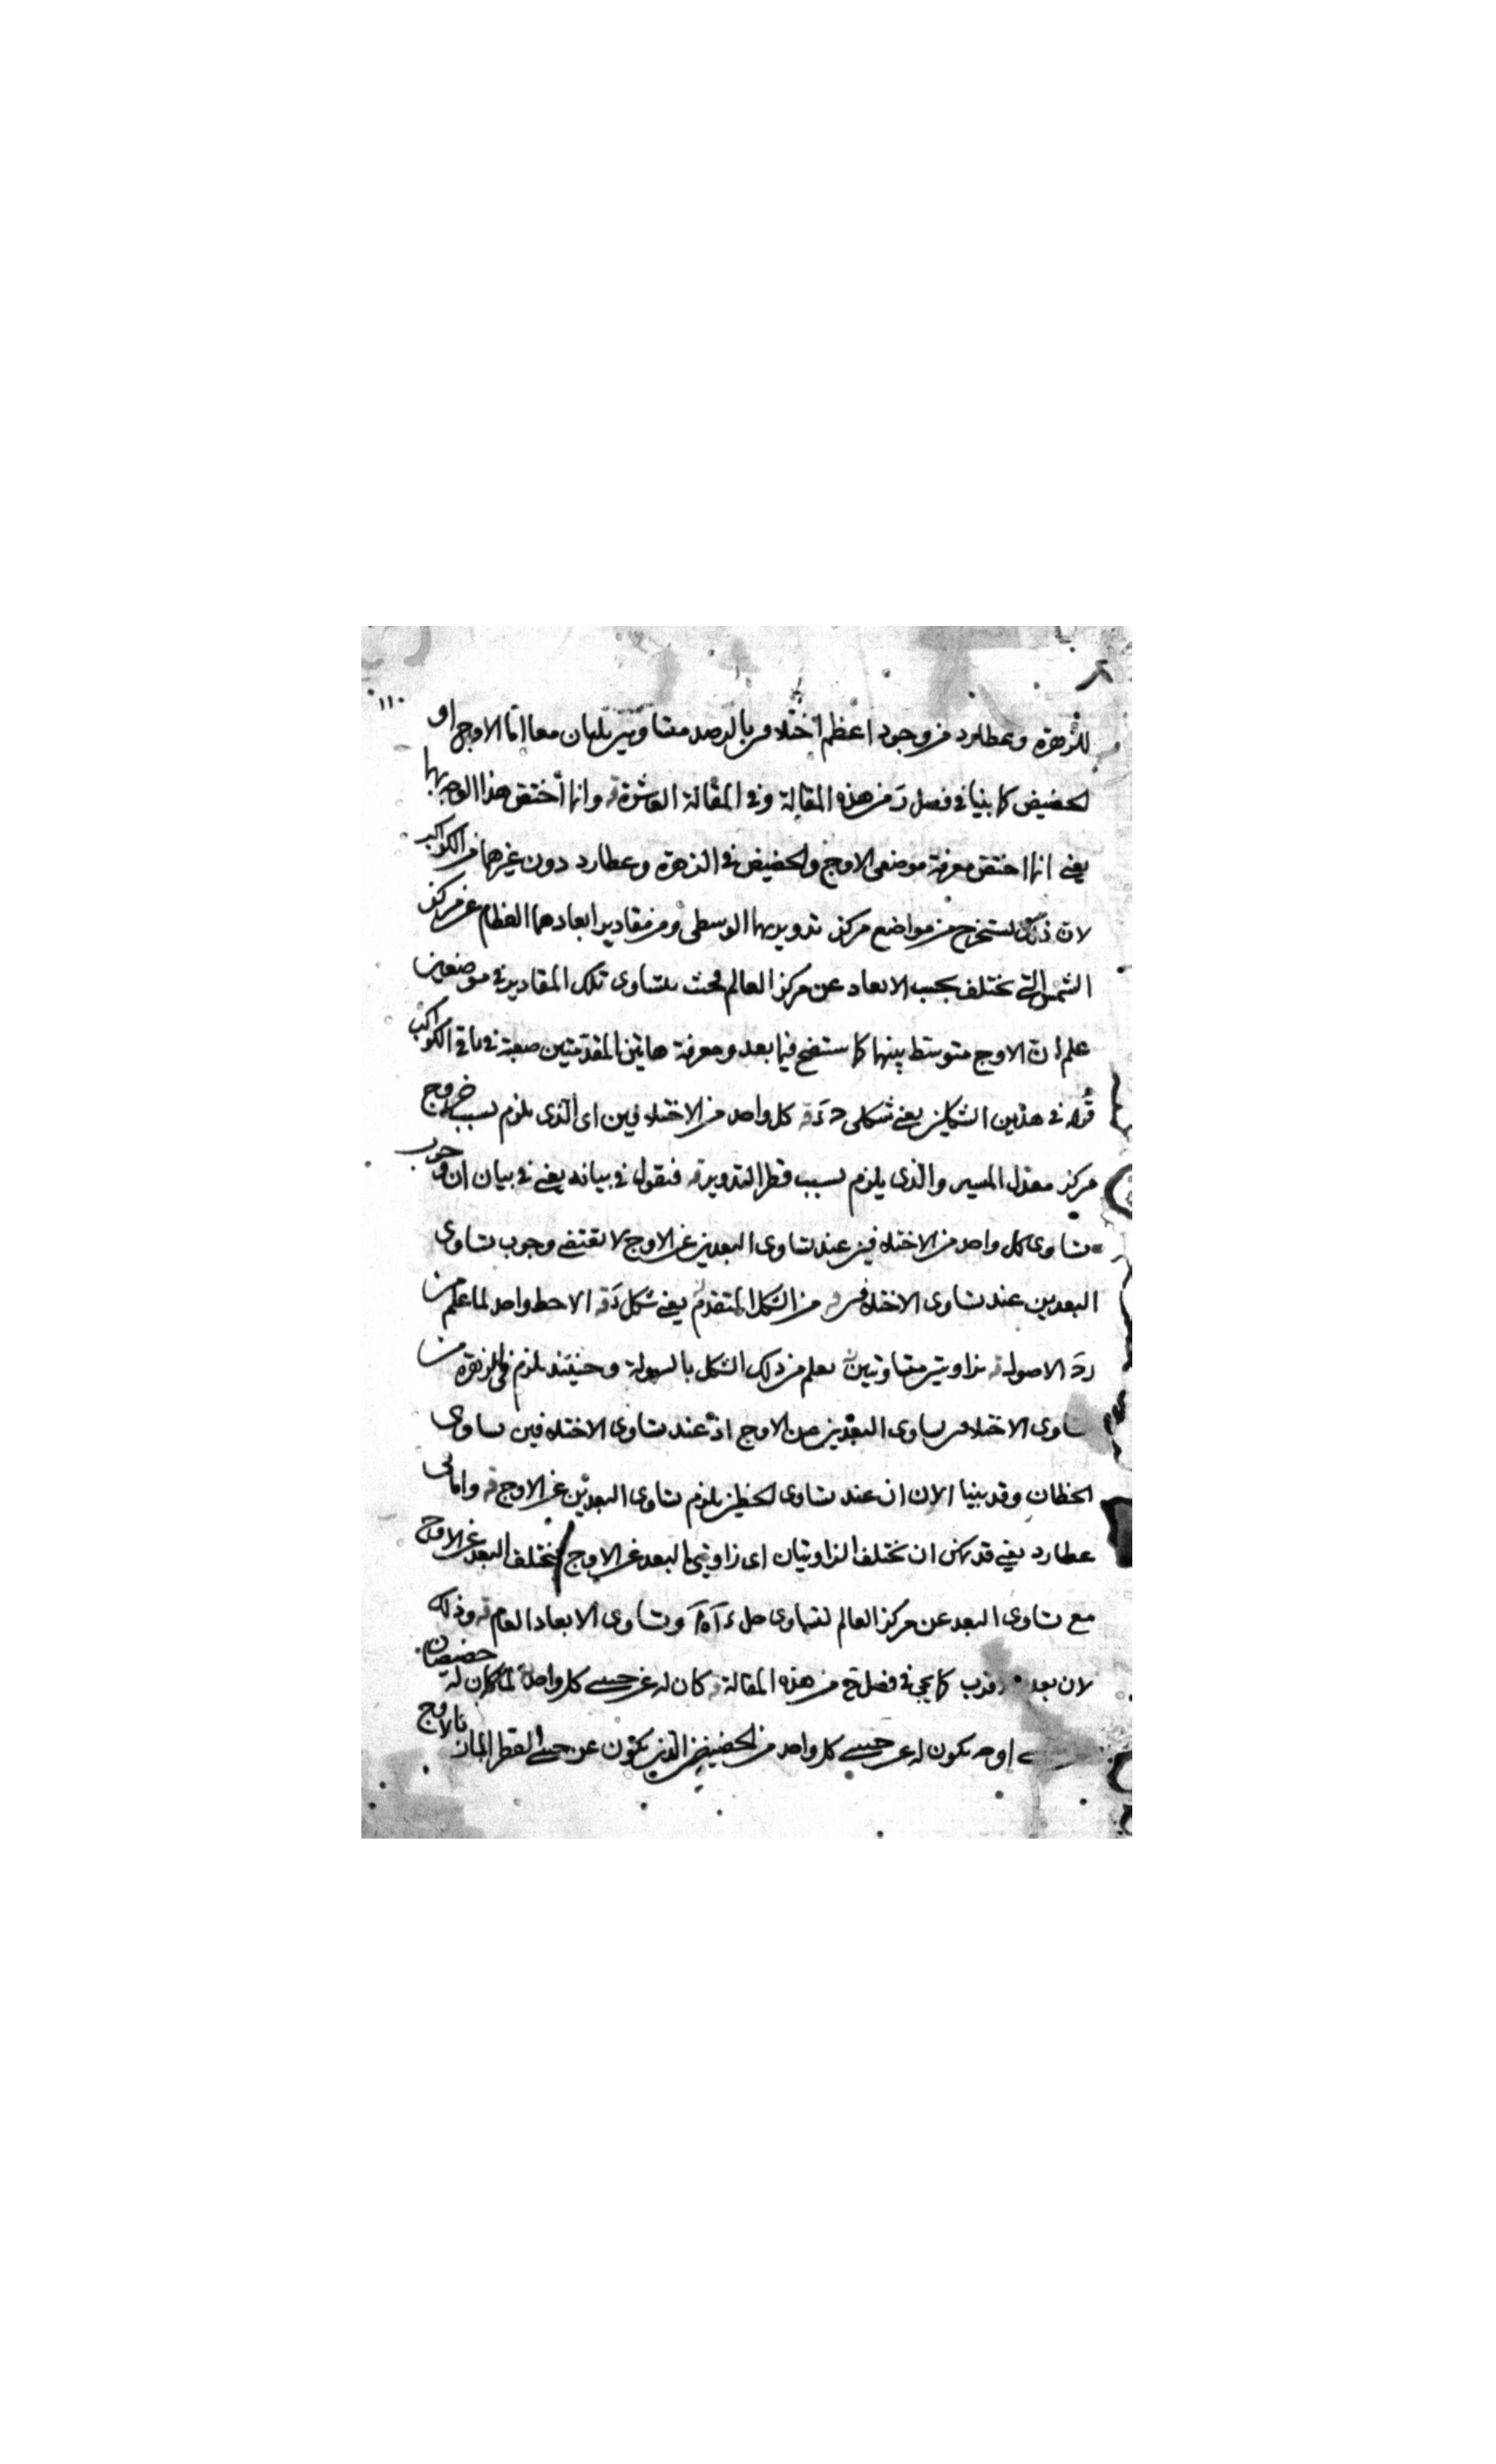 ١١٠
للزهرة وعطارد من وجود اعظم اختلافين بالرصد متساويين يليان معا اما الاوج او
الحضيض كما بينا في فصل دَ من هذه المقالة وفي المقالة العاشرة قه وانما اختص هذا الوجه بهما
يعني انما اختص معرفة موضعي الاوج والحضيض في الزهرة وعطارد دون غيرهما من الكواكب
لان ذلك يستخرج من مواضع مركز تدويريهما الوسطى ومن مقادير ابعادهما العظام عن مركز
الشمس التي تختلف بحسب الابعاد عن مركز العالم فحيث يتساوى تلك المقادير في موضعين
علم ان الاوج متوسط بينهما كما ستضح فيما بعد ومعرفة هاتين المقدمتين صعبة في باقي الكواكب
قوله في هذين الشكلين يعني شكلي دَ قه كل واحد من الاختلافين اي الذي يلزم بسبب خروج
مركز معدل المسير والذي يلزم بسبب قطر التدوير قه فنقول في بيانه يعني في بيان ان وجوب
تساوى كل واحد من الاختلافين عند تساوى البعدين عن الاوج لا يقتضي وجوب تساوى
البعدين عند تساوى الاختلافين قه من الشكل المتقدم يعني شكل دَ قه الاحط واحد لما علم من
ردَ الاصول قه بزاويتين متساويتين يعلم من ذلك الشكل بالسهولة وحينئذ يلزم في الزهرة من
تساوى الاختلافين تساوى البعدين عن الاوج اذ عند تساوى الاختلافين تساوى
الخطان وقد بينا الان ان عند تساوى الخطين يلزم تساوى البعدين عن الاوج قه واما في
عطارد يعني قد يمكن ان تختلف الزاويتان اي زاويتي البعد عن الاوج / تختلف البعد عن الاوج
مع تساوى البعد عن مركز العالم لتساوى وتساوى الابعاد العام قه وذلك
لان بعد قرب كما يجي في فصل حَ من هذه المقالة قه كان له عن جنبتي كل واحد لما كان له حضيضان
اوجه يكون له عن جنبتي كل واحد من الحضيضين الذين يكون عن جنبتي القطر المار بالاوج